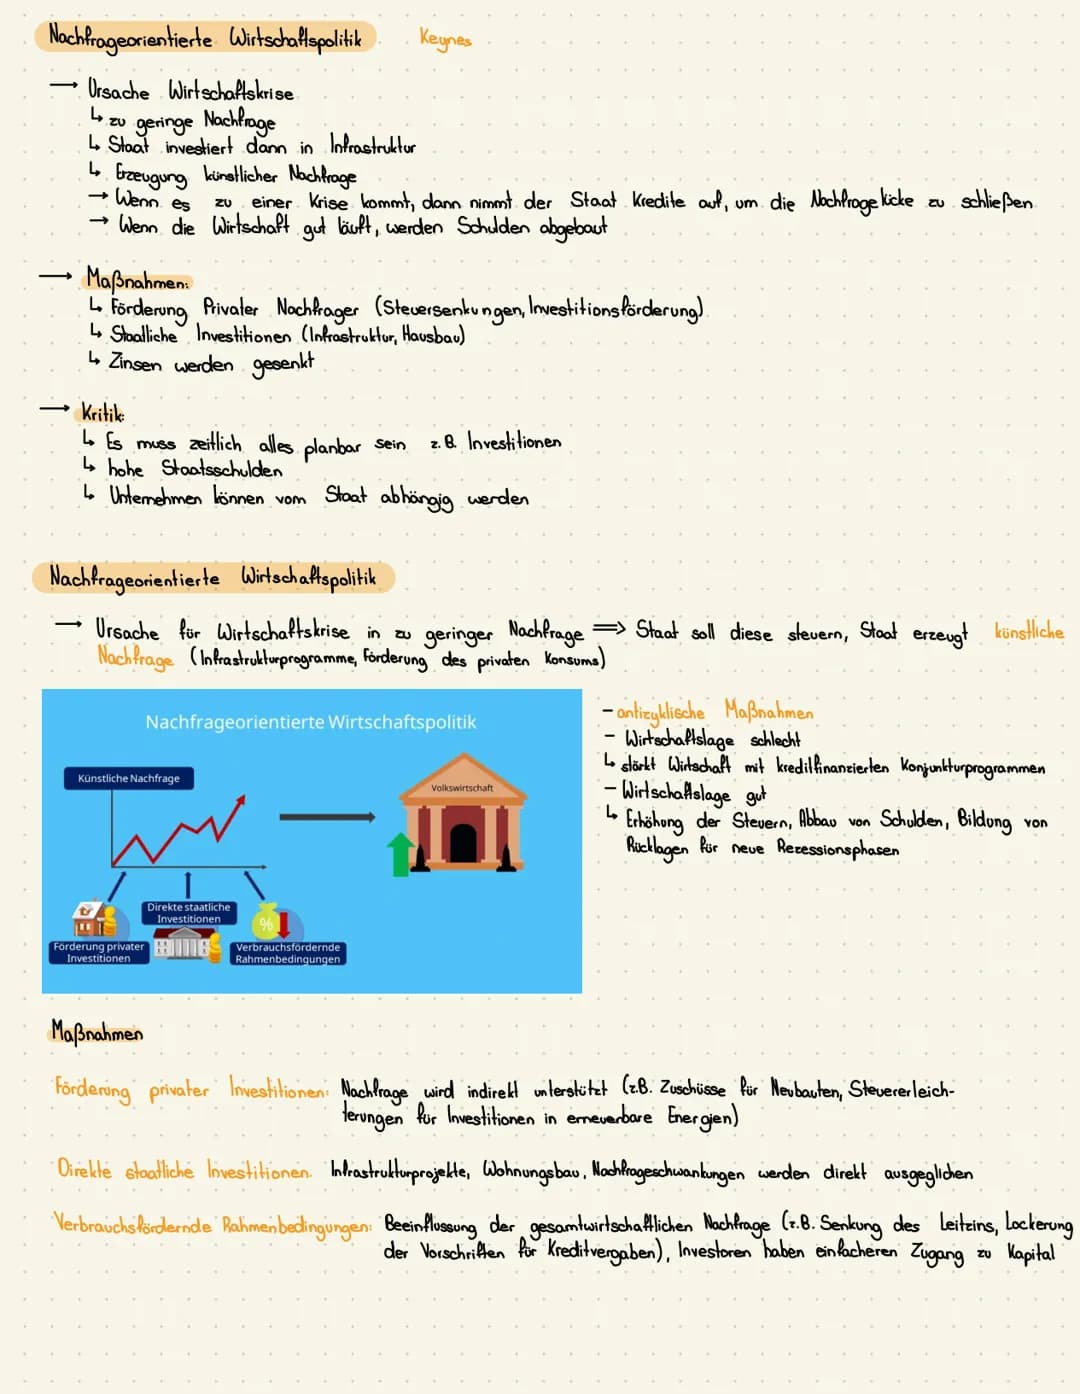 Nachfrageorientierte Wirtschaftspolitik Keynes
→ Ursache Wirtschaftskrise
↳ zu geringe Nachfrage
↳ Staat investiert dann in Infrastruktur
↳ Erzeugung künstlicher Nachfrage
→ Wenn es zu einer Krise kommt, dann nimmt der Staat Kredite auf, um die Nachfragelücke zu schließen
→ Wenn die Wirtschaft gut läuft, werden Schulden abgebaut
→ Maßnahmen:
↳ Förderung Privater Nachfrager (Steuersenkungen, Investitionsförderung)
↳ Staatliche Investitionen (Infrastruktur, Hausbau)
↳ Zinsen werden gesenkt
→ Kritik:
↳ Es muss zeitlich alles planbar sein z.B. Investitionen
↳ hohe Staatsschulden
↳ Unternehmen können vom Staat abhängig werden
Nachfrageorientierte Wirtschaftspolitik
→ Ursache für Wirtschaftskrise in zu geringer Nachfrage ⟹ Staat soll diese steuern, Staat erzeugt künstliche
Nachfrage (Infrastrukturprogramme, Förderung des privaten Konsums)
Nachfrageorientierte Wirtschaftspolitik
Künstliche Nachfrage
Volkswirtschaft
Direkte staatliche
Investitionen
%
Förderung privater
Investitionen
Verbrauchsfördernde
Rahmenbedingungen
- antizyklische Maßnahmen
- Wirtschaftslage schlecht
↳ stärkt Wirtschaft mit kreditfinanzierten Konjunkturprogrammen
- Wirtschaftslage gut
↳ Erhöhung der Steuern, Abbau von Schulden, Bildung von
Rücklagen für neue Rezessionsphasen
Maßnahmen
Förderung privater Investitionen: Nachfrage wird indirekt unterstützt (z.B. Zuschüsse für Neubauten, Steuererleich-
terungen für Investitionen in erneuerbare Energien)
Direkte staatliche Investitionen: Infrastrukturprojekte, Wohnungsbau, Nachfrageschwankungen werden direkt ausgeglichen
Verbrauchsfördernde Rahmenbedingungen: Beeinflussung der gesamtwirtschaftlichen Nachfrage (z.B. Senkung des Leitzins, Lockerung
der Vorschriften für Kreditvergaben), Investoren haben einfacheren Zugang zu Kapital